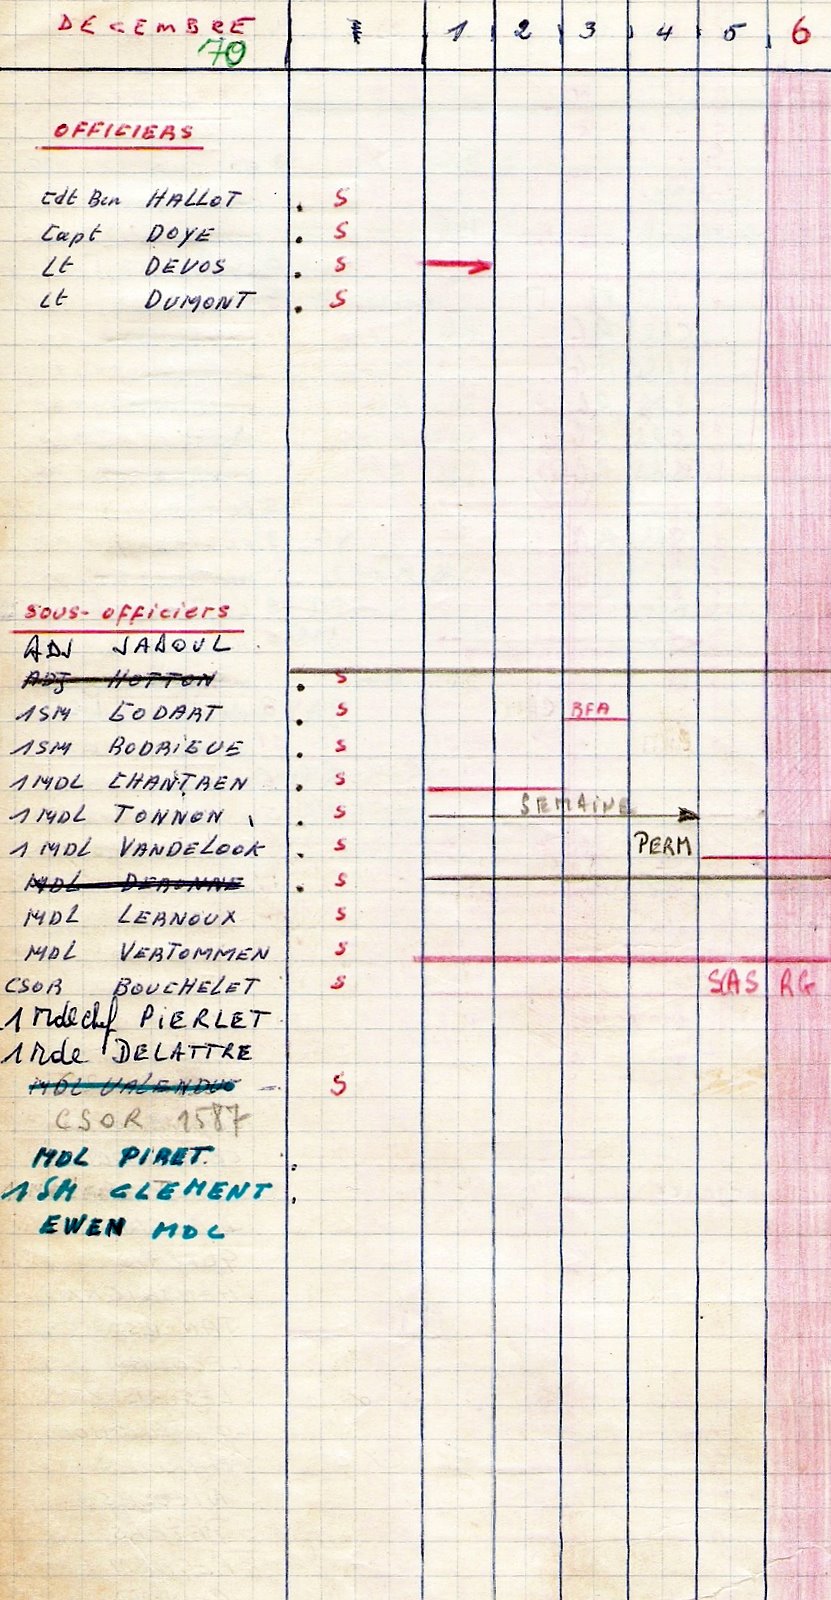 DECEMBRE 1 2 3 4 5 6
70
OFFICIERS
Cdt Bcn HALLOT S
Capt DOYE S
Lt DEVOS S
Lt DUMONT S
SOUS-OFFICIERS
ADJ JADOUL
ADJ HOTTON S
1SM GODART S BFA
1SM RODRIGUE S
1MDL CHANTREN S
1MDL TONNON S SEMAINE
1MDL VANDELOOK S PERM
MDL DERONNE S
MDL LERNOUX S
MDL VERTOMMEN S
CSOR BOUCHELET S S/AS RG
1 Mdlchef PIERLET
1 Mdl DELATTRE
MDL VALENDUC S
CSOR 1587
MDL PIRET
1SM CLEMENT
EWEN MDL